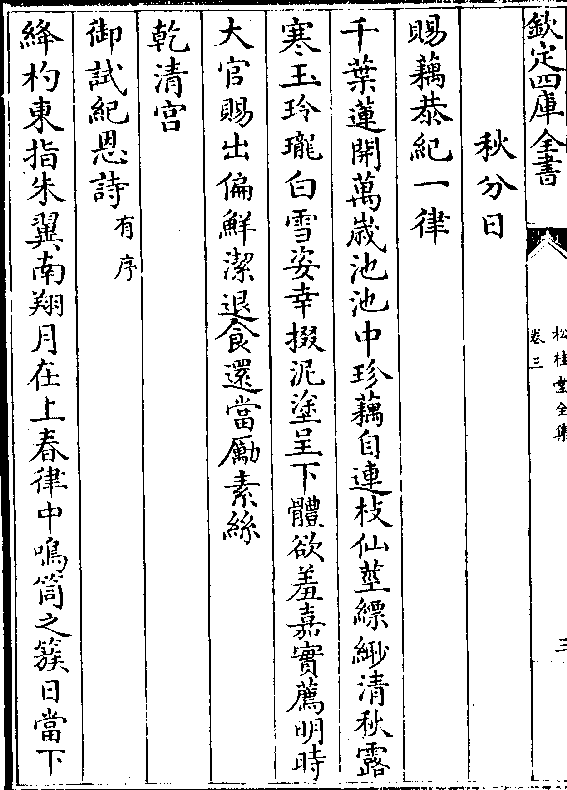 欽定四庫全書
松桂堂全集
卷三
三
秋分日
賜藕恭紀一律
千葉蓮開萬歲池池中珍藕自連枝仙莖縹緲清秋露
寒玉玲瓏白雪姿幸掇泥塗呈下體欲羞嘉實薦明時
大官賜出偏鮮潔退食還當勵素絲
乾清宫
御試紀恩詩有序
絳杓東指朱翼南翔月在上春律中鳴筒之簇日當下